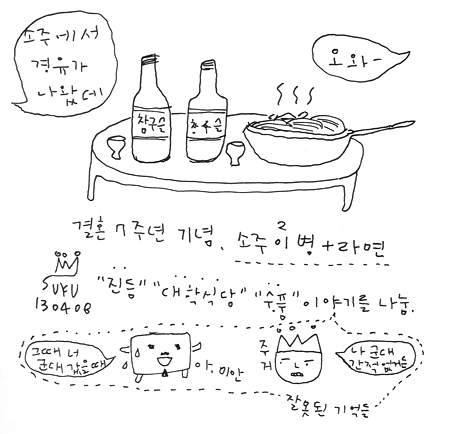 소주에서
경유가
나왔데
오와~
참구슬
참구슬
결혼 7주년 기념. 소주 2병 + 라면
SUKU
130408
"진등" "대학식당" "수퓽" 이야기를 나눔.
그때 너
군대 갔을때
아, 미안
주
거
나 군대
간적 없거든
잘못된 기억들